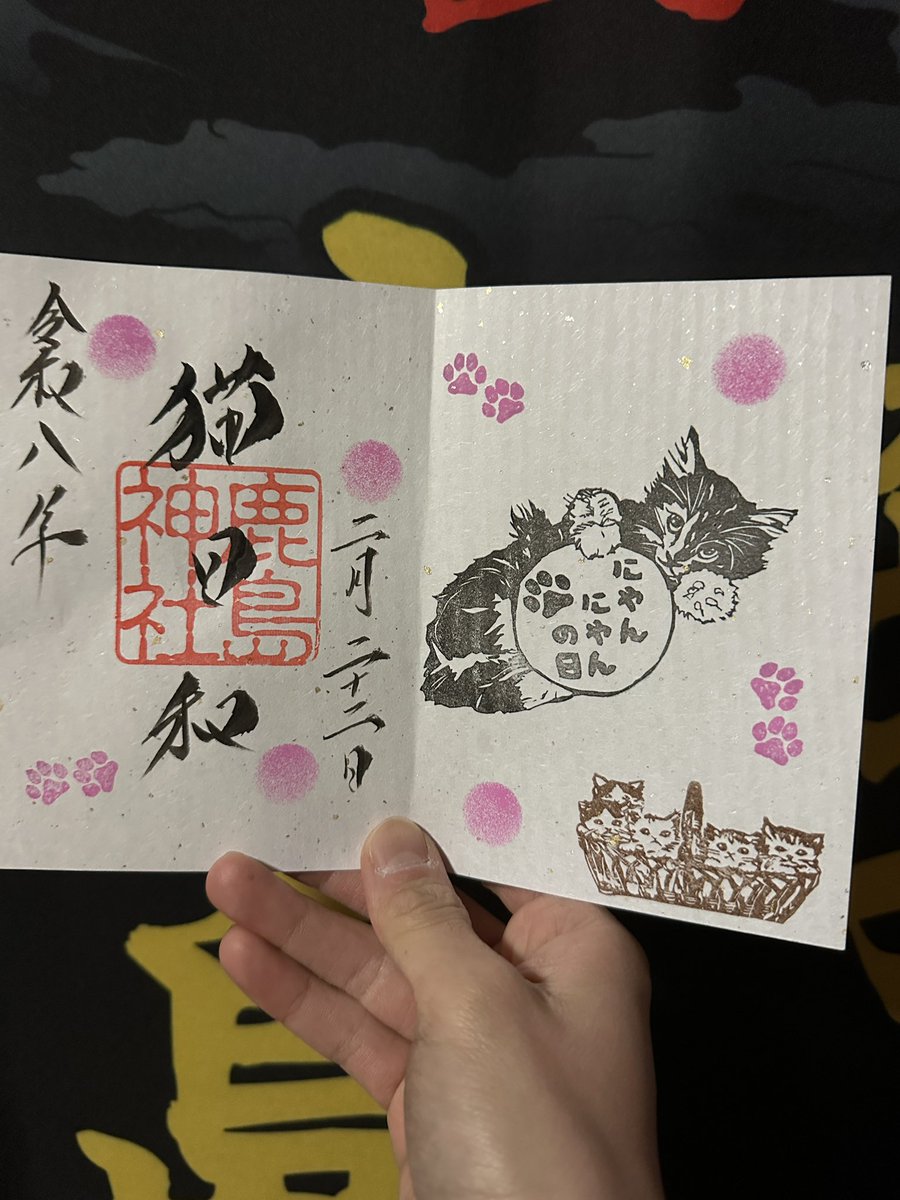 にゃん
にゃん
の日
二月二十二日
猫日和
鹿島
神社
令和八年